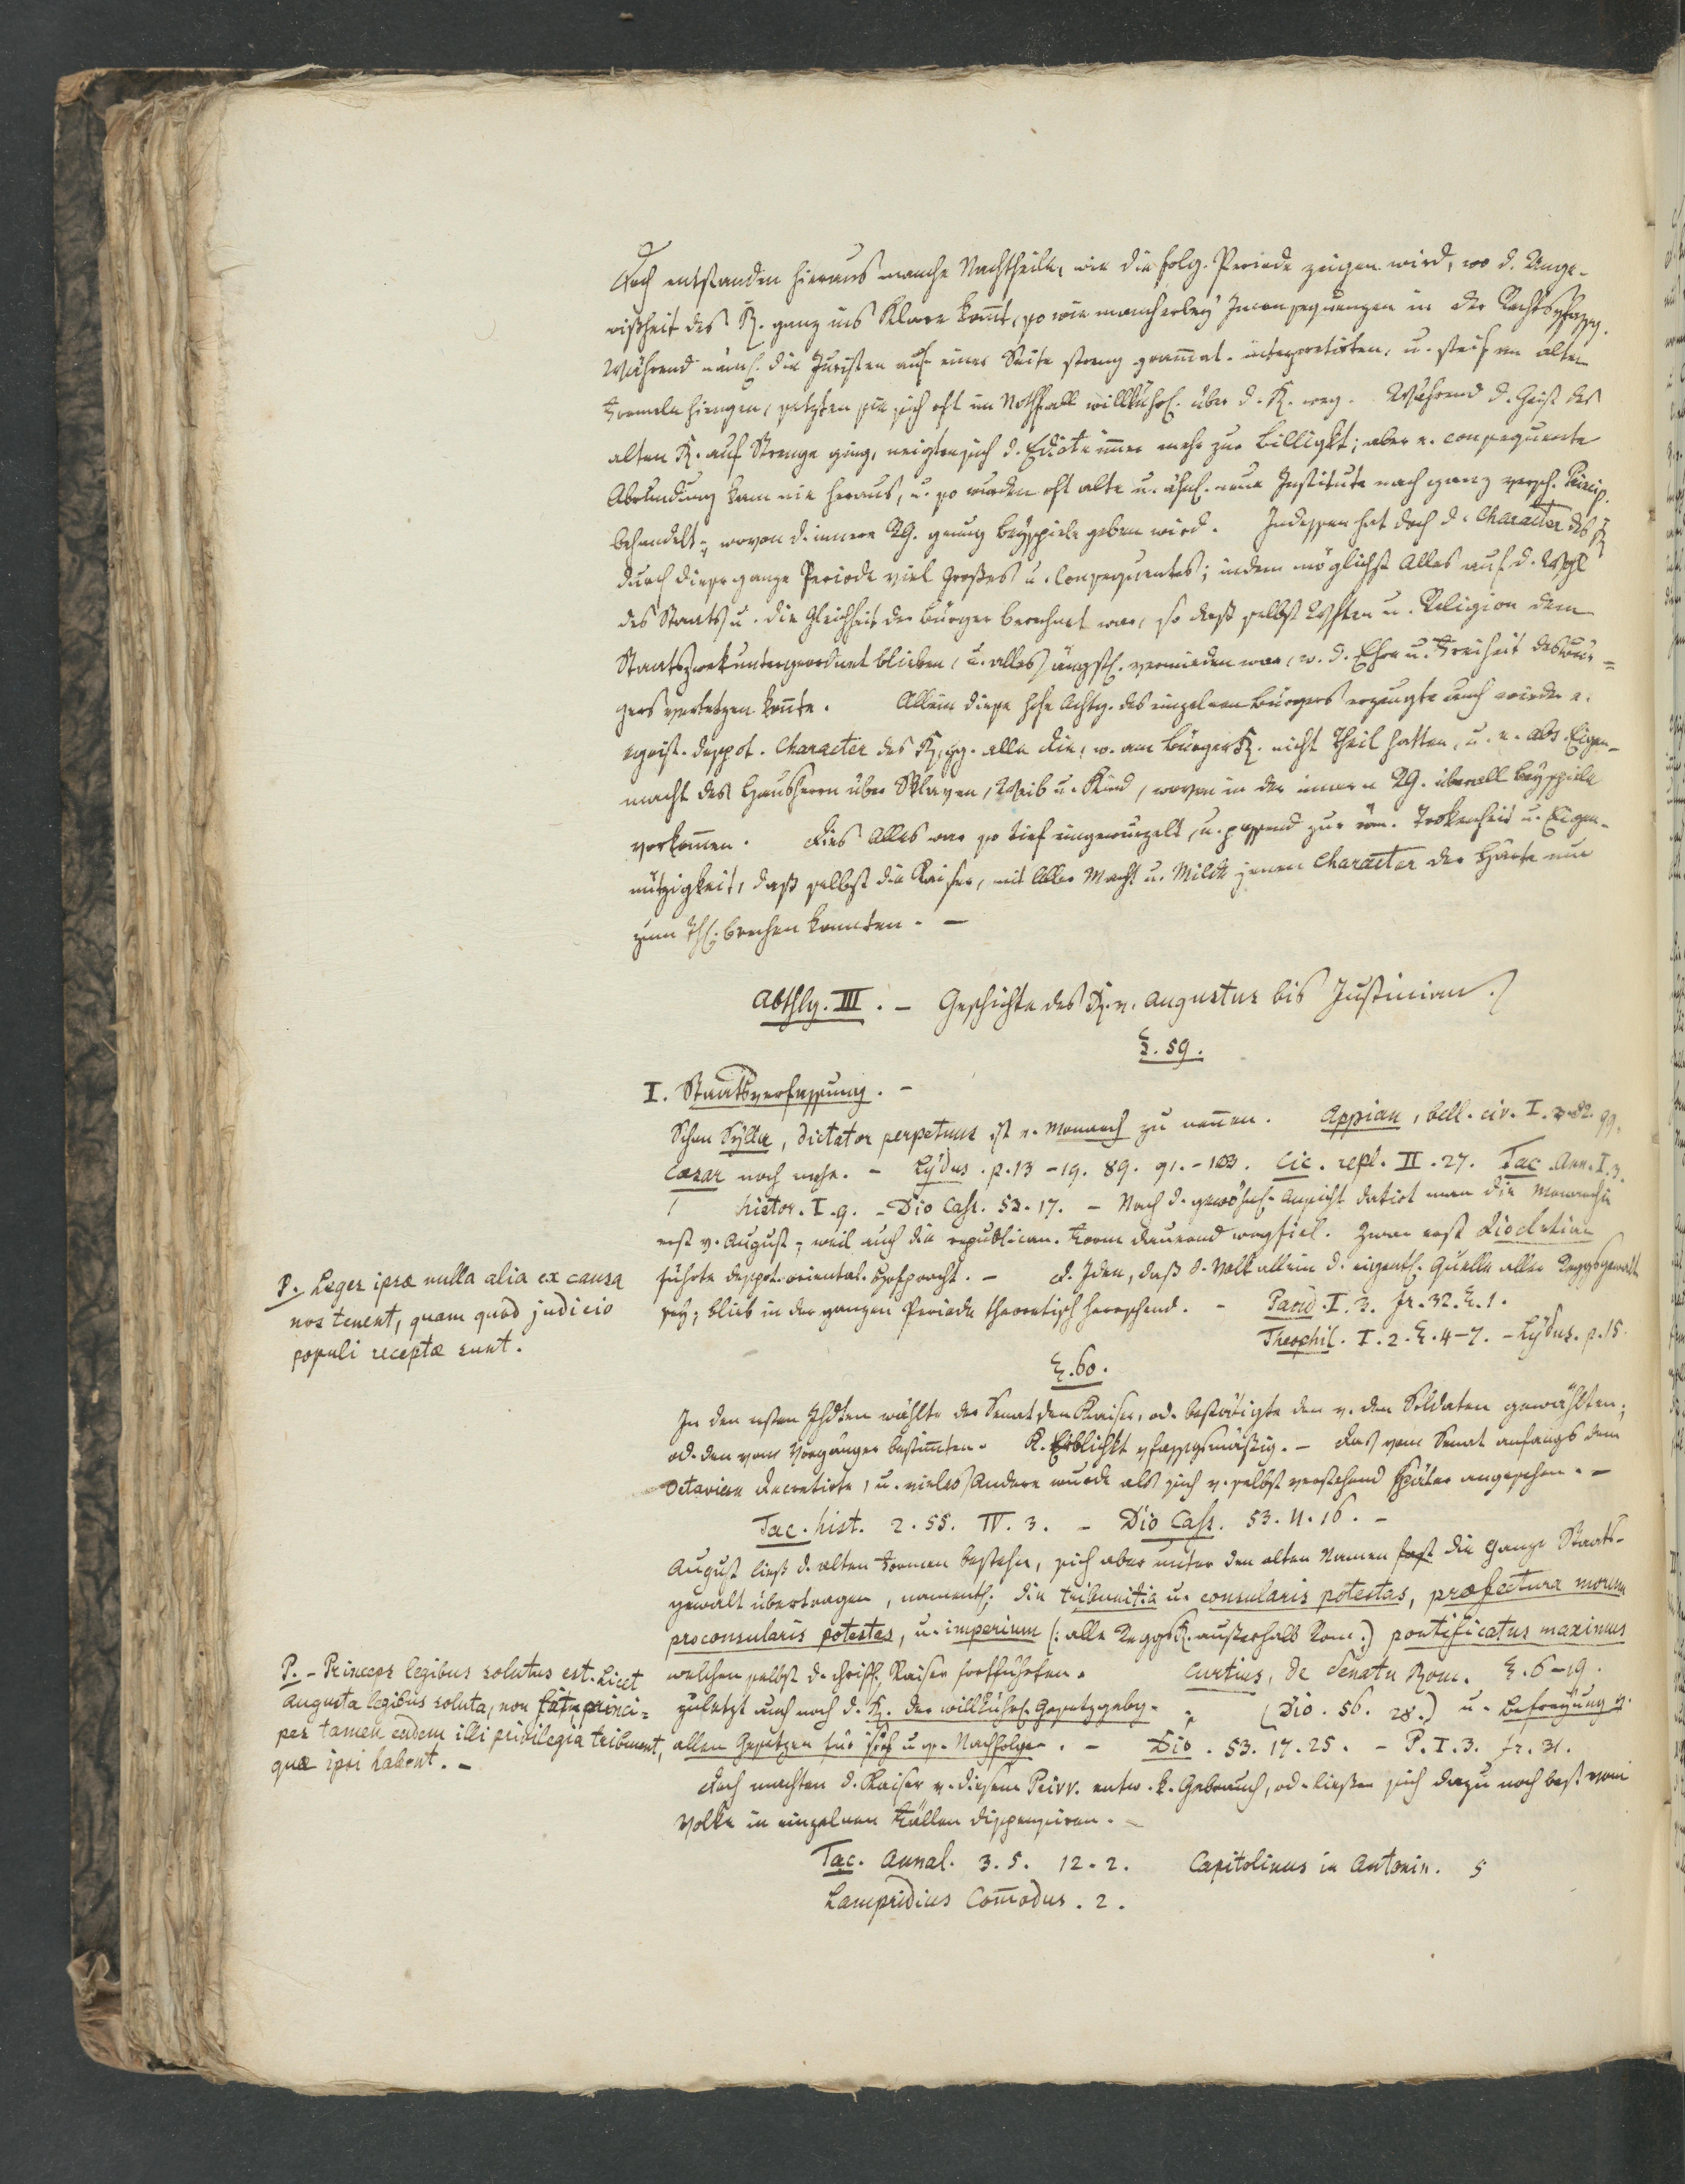 Doch entstanden hieraus manche Nachtheile, wie die folg. Periode zeigen wird, wo d. Unge-
wißheit des R. ganz ins Klare kom̅t, so wie mancherley Inconsequenzen in der Rechtsvfassg.
Während näml. die Juristen auf einer Seite streng gram̅at. interpretirten, u. steif am alten
Formeln hiengen, setzten sie sich oft im Nothfall willkührl. über d. R. weg. Während d. Geist des
alten R. auf Strenge ging, neigten sich d. Edicte im̅er mehr zur Billigkt; aber e. consequente
Abrundung kam nie heraus, u. so wurden oft alte u. ähnl. neue Institute nach ganz versch. Princip.
behandelt; wovon d. innere RG. genug Beyspiele geben wird. Indessen hat doch d. Character des R.
durch diese ganze Periode viel Großes u. Consequentes; indem möglichst Alles auf d. Wohl
des Staats u. die Gleichheit der Bürger berechnet war, so daß selbst Sitten u. Religion dem
Staatszwek untergeordnet blieben, u. alles ängstl. vermieden war, w. d. Ehre u. Freiheit des Bür=
gers verletzen kon̅te. Allein diese hohe Achtg. des einzelnen Bürgers erzeugte auch wieder e.
egoist. despot. Character des R. gg. alle die, w. am BürgerR. nicht Theil hatten, u. e. abs. Eigen-
macht des Hausherrn über Sklaven, Weib u. Kind, wovon in der innern RG. überall Beyspiele
vorkom̅en. Dies Alles war so tief eingewurzelt, u. passend zur röm. Trokenheit u. Eigen-
nützigkeit, daß selbst die Kaiser, mit aller Macht u. Milde jenen Character der Härte nur
zum Thl. brechen konnten. -
Abthlg. III. - Geschichte des R. v. Augustus bis Justinian.
§. 59.
I. Staatsverfassung. -
Schon Sylla, dictator perpetuus ist e. Monarch zu nen̅en. Appian, bell. civ. I. 99.
Cæsar noch mehr. - Lydus. p. 13-19. 89. 91.-103. Cic. repl. II. 27. Tac. Ann. I. 3.
histor. I. 9. - Dio Cass. 53. 17. - Nach d. gewöhnl. Ansicht datirt man die Monarchie
erst v. August; weil auch die republican. Form dauernd wegfiel. Zwar erst Diocletian
führte despot. oriental. Hofpracht. - D. Idee, daß d. Volk allein d. eigentl. Quelle aller Reggsgewalt
sey; blieb in der ganzen Periode theoretisch herrschend. - Pand. I. 3. fr. 32. §. 1.
Theophil. I. 2. §. 4-7. - Lydus. p. 15.
P. Leges ipsæ nulla alia ex causa
nos tenent, quam quod judicio
populi receptæ sunt.
§. 60.
In den ersten Jhdten wählte der Senat den Kaiser, od. bestätigte den v. den Soldaten gewählten;
od. den vom Vorgänger bestim̅ten. K. Erblichkt vfassgsmäßig. - Das vom Senat anfangs dem
Octavian decretirte, u. vieles Andere wurde als sich v. selbst verstehend später angesehen. -
Tac. hist. 2. 55. IV. 3. - Dio Cass. 53. 11. 16. -
August ließ d. alten Formen bestehn, sich aber unter den alten Namen fast die ganze Staats-
gewalt übertragen, namentl. die tribunitia u. consularis potestas, præfectura morum
proconsularis potestas, u. imperium (: alle ReggsR. außerhalb Rom:) pontificatus maximus
welchen selbst d. christl. Kaiser fortführten. Curtius, de Senatu Rom. §. 6-19.
zuletzt auch noch d. R. der willkührl. Gesetzgebg. (Dio. 56. 28.) u. Befreyung v.
allen Gesetzen für sich u. s. Nachfolger. - Dio. 53. 17. 25. - P. I. 3. fr. 31.
P. - Princeps legibus solutus est. Licet
Augusta legibus soluta, non sit, princi=
pes tamen eadem illi privilegia tribuunt,
quæ ipsi habent. -
Doch machten d. Kaiser v. diesem Privv. entw. k. Gebrauch, od. ließen sich dazu noch bes. vom
Volke in einzelnen Fällen dispensiren. -
Tac. Annal. 3. 5. 12. 2. Capitolinus in Antonin. 5
Lampridius Com̅odus. 2.